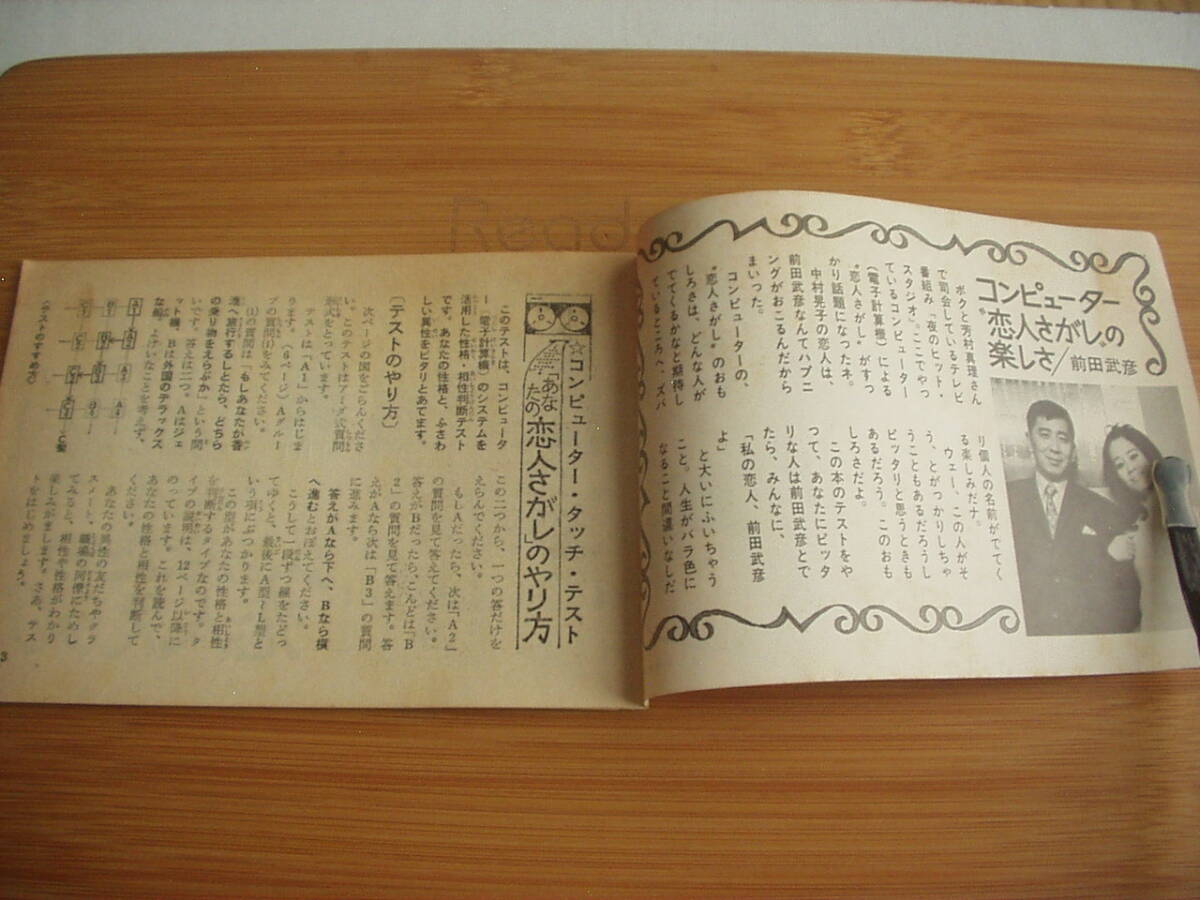 コンピューター
"恋人さがし"の
楽しさ/前田武彦
ボクと芳村真理さん
で司会しているテレビ
番組み「夜のヒット・
スタジオ」。ここでやっ
ているコンピューター
(電子計算機)による
"恋人さがし"がすっ
かり話題になったネ。
中村晃子の恋人は、
前田武彦なんてハプニ
ングがおこるんだから
まいった。
コンピューターの、
"恋人さがし"のおも
しろさは、どんな人が
でてくるかなと期待し
ているところへ、ズバ
リ個人の名前がでてく
る楽しみだナ。
ウェー、この人がそ
う、とがっかりしちゃ
うこともあるだろうし
ピッタリと思うときも
あるだろう。このおも
しろさだよ。
この本のテストをや
って、あなたにピッタ
リな人は前田武彦とで
たら、みんなに、
「私の恋人、前田武彦
よ」
と大いにふいちゃう
こと。人生がバラ色に
なること間違いなしだ
☆コンピューター・タッチ・テスト
「あなたの恋人さがし」のやり方
このテストは、コンピュータ
ー(電子計算機)のシステムを
活用した性格、相性判断テスト
です。あなたの性格と、ふさわ
しい異性をピタリとあてます。
〔テストのやり方〕
次ページの図をごらんくださ
い。このテストはアミダ式質問
形式をとっています。
テストは「A1」からはじま
ります。(6ページ)Aグルー
プの質問(1)をみてください。
(1)の質問は「もしあなたが香
港へ旅行するしとたら、どちら
の乗り物をえらぶか」という問
いです。答えは二つ。Aはジェ
ット機、Bは外国のデラックス
な船。よけいなことを考えず、
この二つから、一つの答だけを
えらんでください。
もしAだったら、次は「A2」
の質問を見て答えてください。
答えがBだったら、こんどは「B
2」の質問を見て答えます。答
えがAなら次は「B3」の質問
に進みます。
答えがAなら下へ、Bなら横
へ進むとお憶えてください。
こうして一段ずつ線をたどっ
てゆくと、最後にA型〜L型と
いう項にぶつかります。
この型があなたの性格と相性
を判断するタイプなのです。タ
イプの説明は、12ページ以降に
のっています。これを読んで、
あなたの性格と相性を判断して
ください。
あなたの異性の友だちやクラ
スメート、職場の同僚にためし
てみると、相性や性格がわかり
楽しみがまします。さあ、テス
トをはじめましょう。
(テストのすすめ方)
3